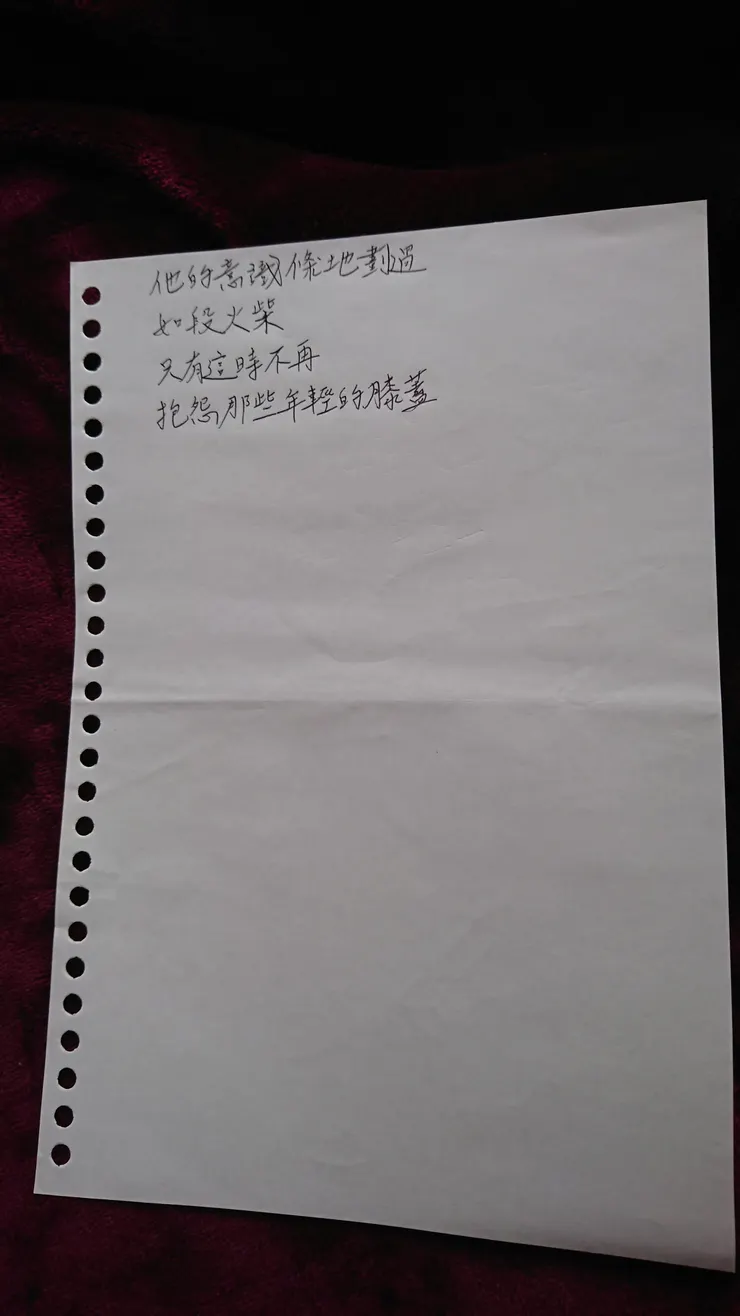 他的意識倏地劃過
如段火柴
只有這時不再
抱怨那些年輕的膝蓋